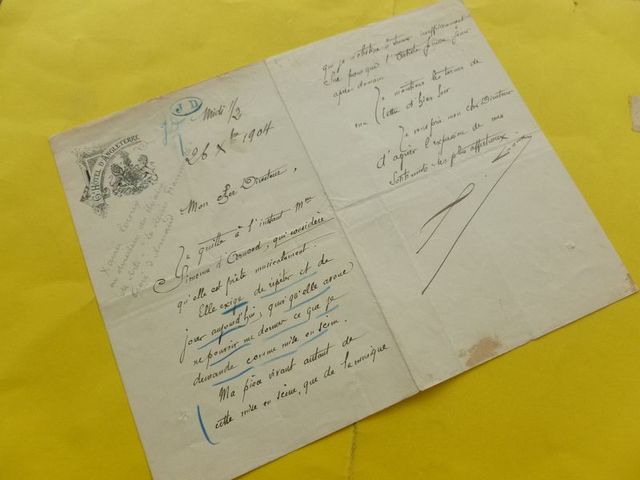 J D
Gd HOTEL D'ANGLETERRE
Midi 1/2
26 Xbre 1904
Mon Cher Directeur,
Je quitte à l'instant Mme
Simonne d'Arnaud, qui considère
qu'elle est prête musicalement.
Elle exige de répéter et de
jouer aujourd'hui, quoi qu'elle avoue
ne pouvoir me donner ce que je
demande comme mise en scène.
Ma pièce vivant autant de
cette mise en scène, que de la musique
que je m'obstine à trouver insuffisamment
Sue pour que l'artiste puisse jouer
après demain
Je maintiens les termes de
ma lettre d'hier soir
Je vous prie mon cher Directeur
d'agréer l'expression de mes
Sentiments les plus affectueux